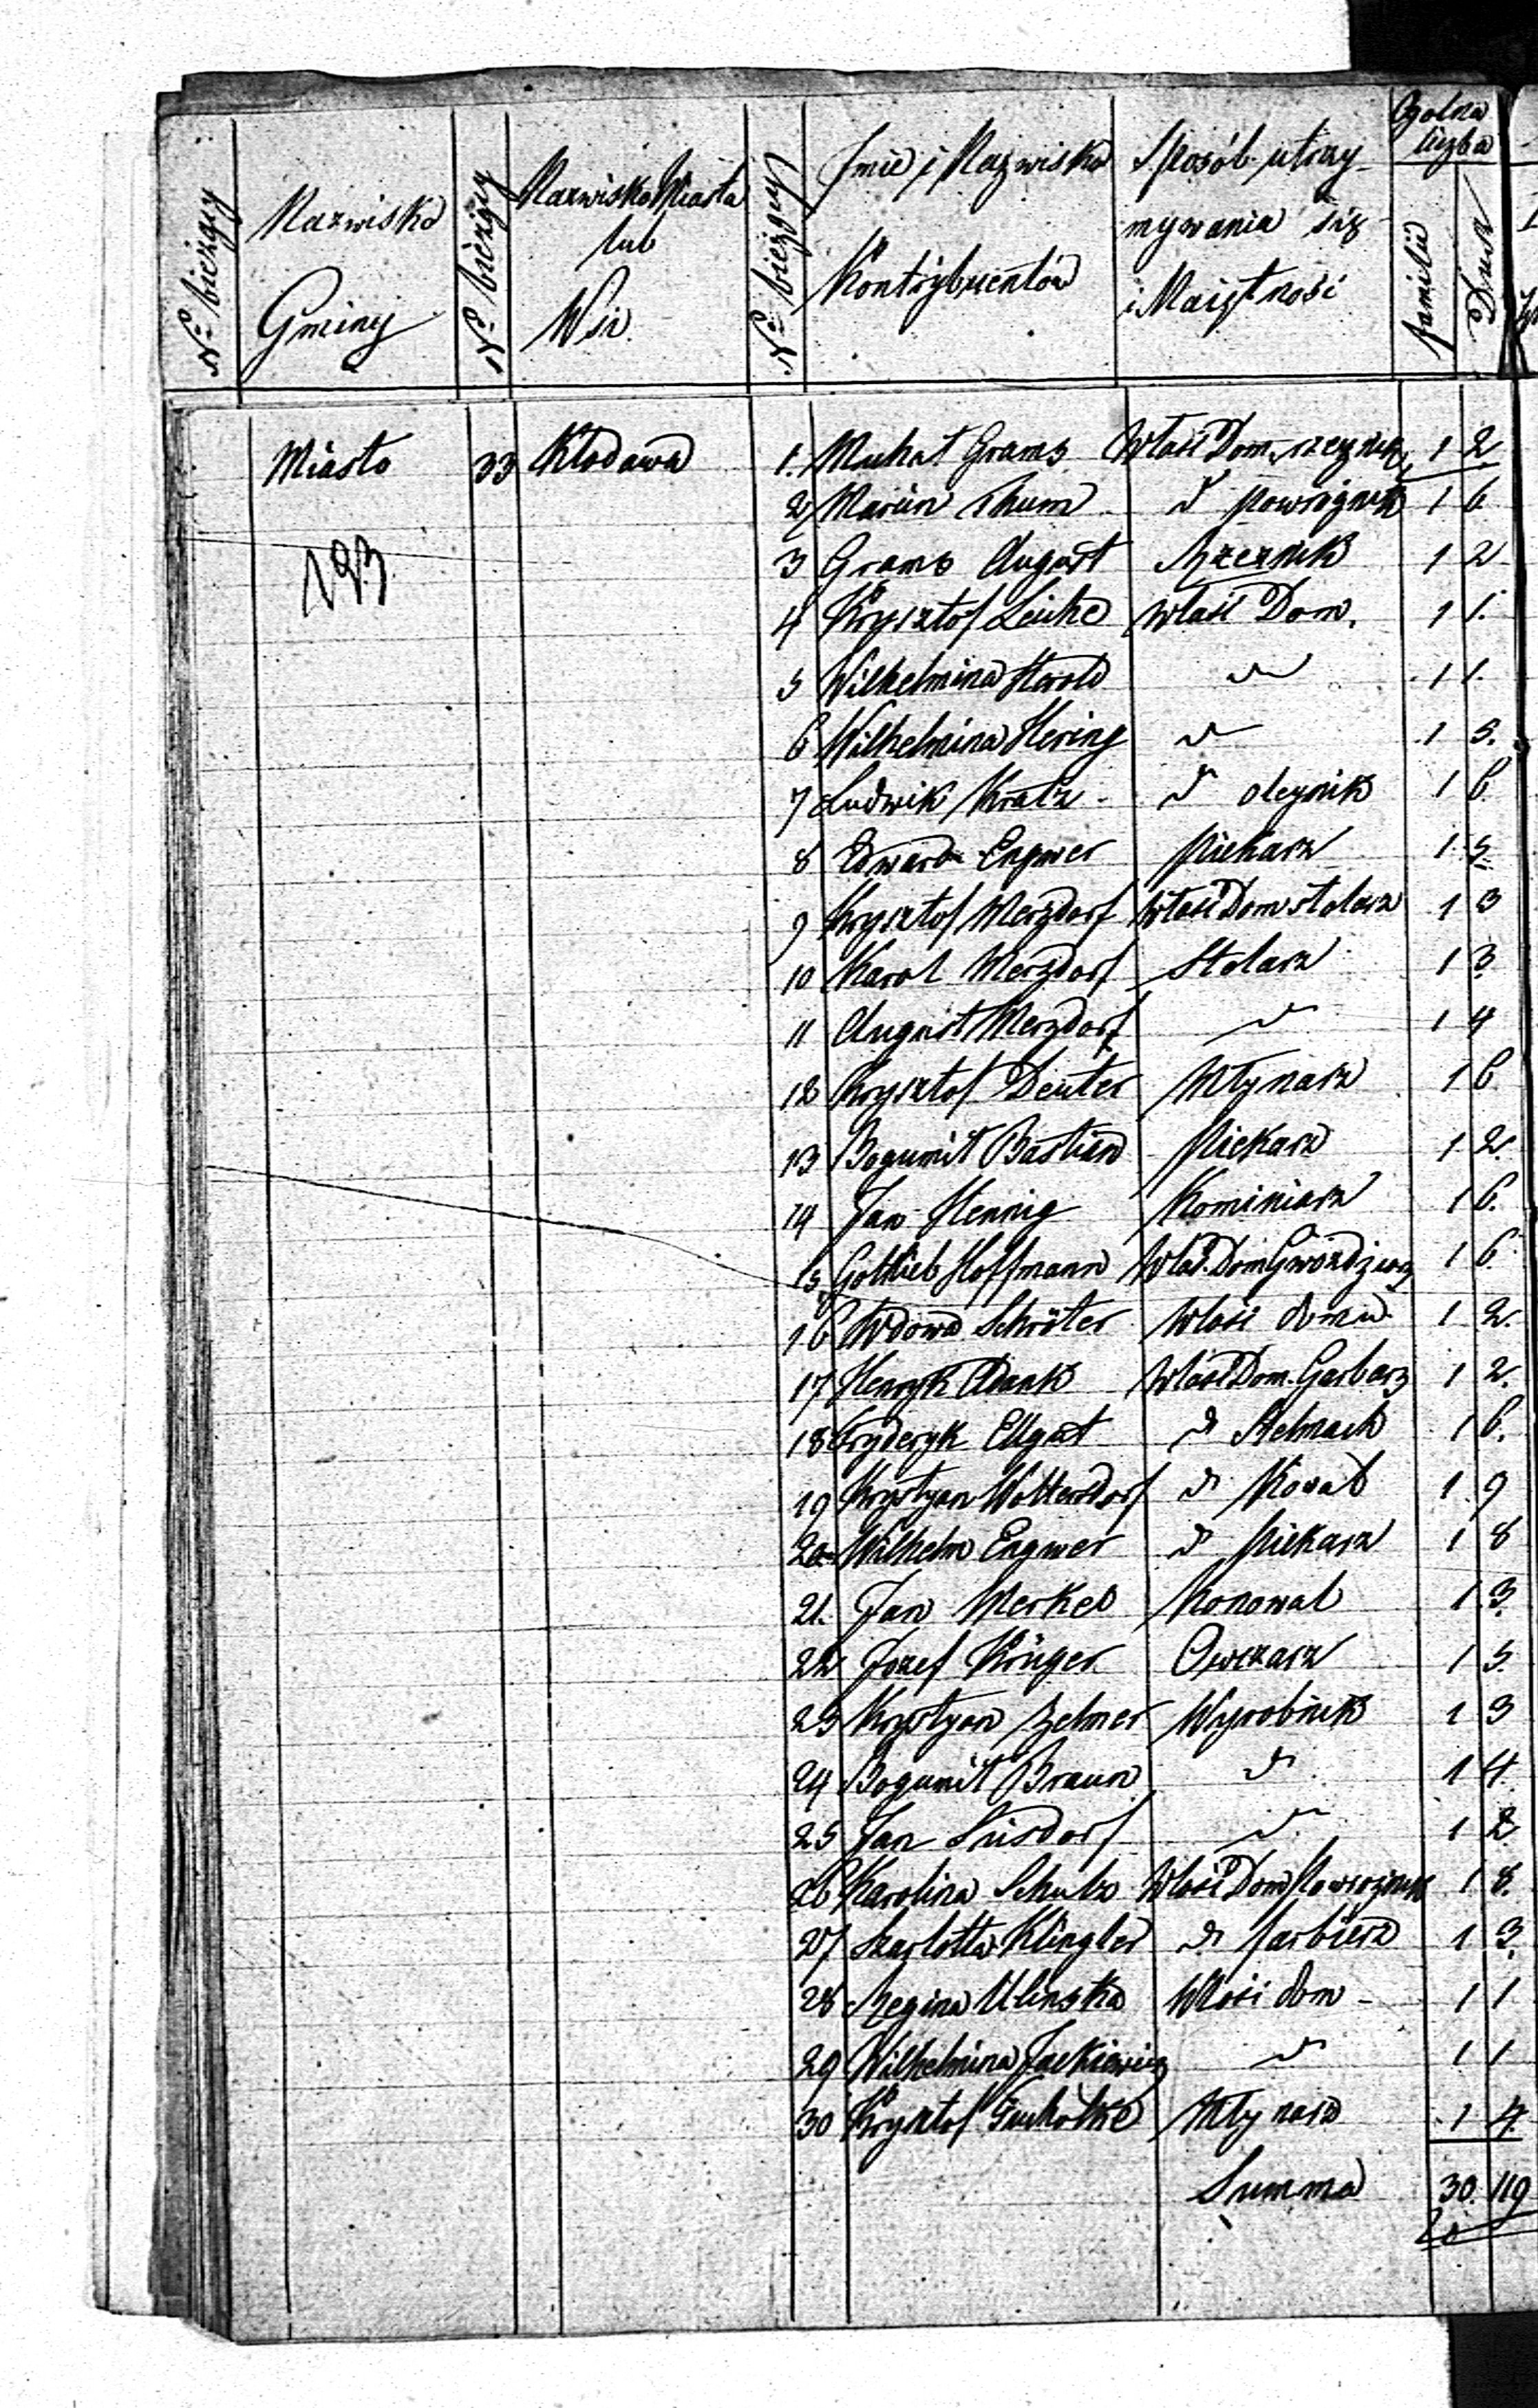 Ogolna
liczba
No bieżący
Nazwisko
Gminy
No bieżący
Nazwisko Miasta
lub
Wsi
No bieżący
Jmie i Nazwisko
Kontrybuentów
Sposób utrzy-
mywania się
i Maiętność
familii
Dusz
Miasto 33 Kłodawa 1. Michał Grams Właść Dom rzeznik 1 2
2 Marcin Thum d powroźnik 1 6
193
3 Grams August Rzeznik 1 2
4 Krysztof Leske Właść Dom. 1 1.
5 Wilhelmina Herold d 1 1.
6 Wilhelmina Hering d 1 5.
7 Ludwik Kratz d oleynik 1 6
8 Edward Engwer Piekarz 1 5
9 Krysztof Merzdorf Właść Dom stolarz 1 3
10 Karol Merzdorf Stolarz 1 3
11 August Merzdorf d 1 4
12 Krysztof Deuter Młynarz 1 6
13 Bogumił Bastian Piekarz 1 2.
14 Jan Hennig Kominiarz 1 6.
15 Gottlieb Hoffmann Właś. Dom Gwoździarz 1 6
16 Wdowa Schröter Właść domu 1 2.
17 Henryk Adank Właść Dom. Garbarz 1 2.
18 Fryderyk Ellgut d Stelmach 1 6.
19 Krystyan Woltersdorf d Kowal 1 9
20 Wilhelm Engwer d Piekarz 1 8
21. Jan Merkel Konował 1 3.
22 Jozef Krüger Owczarz 1 5.
23 Krystyan Zelmer Wyrobnik 1 3
24 Bogumił Braun d 1 4
25 Jan Susdorf d 1 2
26 Karolina Schulz Właść Dom Powroźnik 1 8.
27 Szarlotta Klingler d farbierz 1 3.
28 Regina Ulinska Właść dom 1 1
29 Wilhelmina Jackiewicz d 1 1
30 Krysztof Tucholke Młynarz 1 4
Summa 30. 119